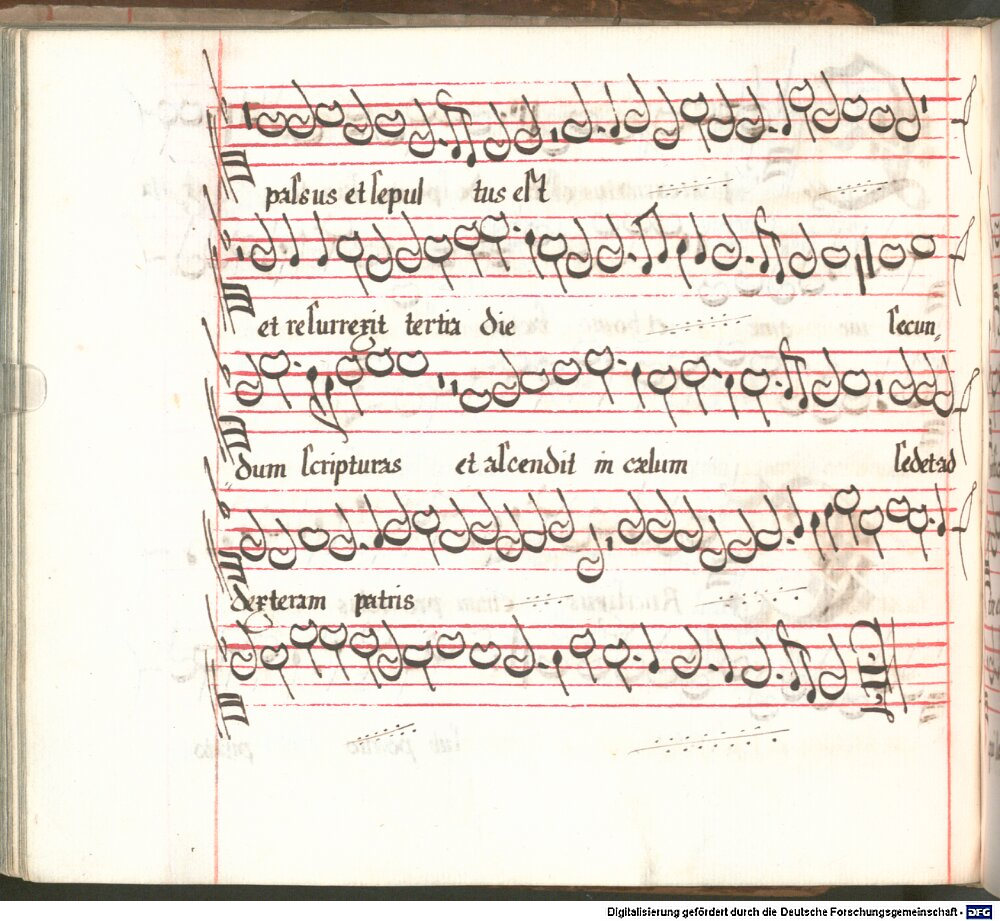 passus et sepul tus est
et resurrexit tertia die secun
dum scripturas et ascendit in cælum sedet ad
dexteram patris
Digitalisierung gefördert durch die Deutsche Forschungsgemeinschaft - DFG